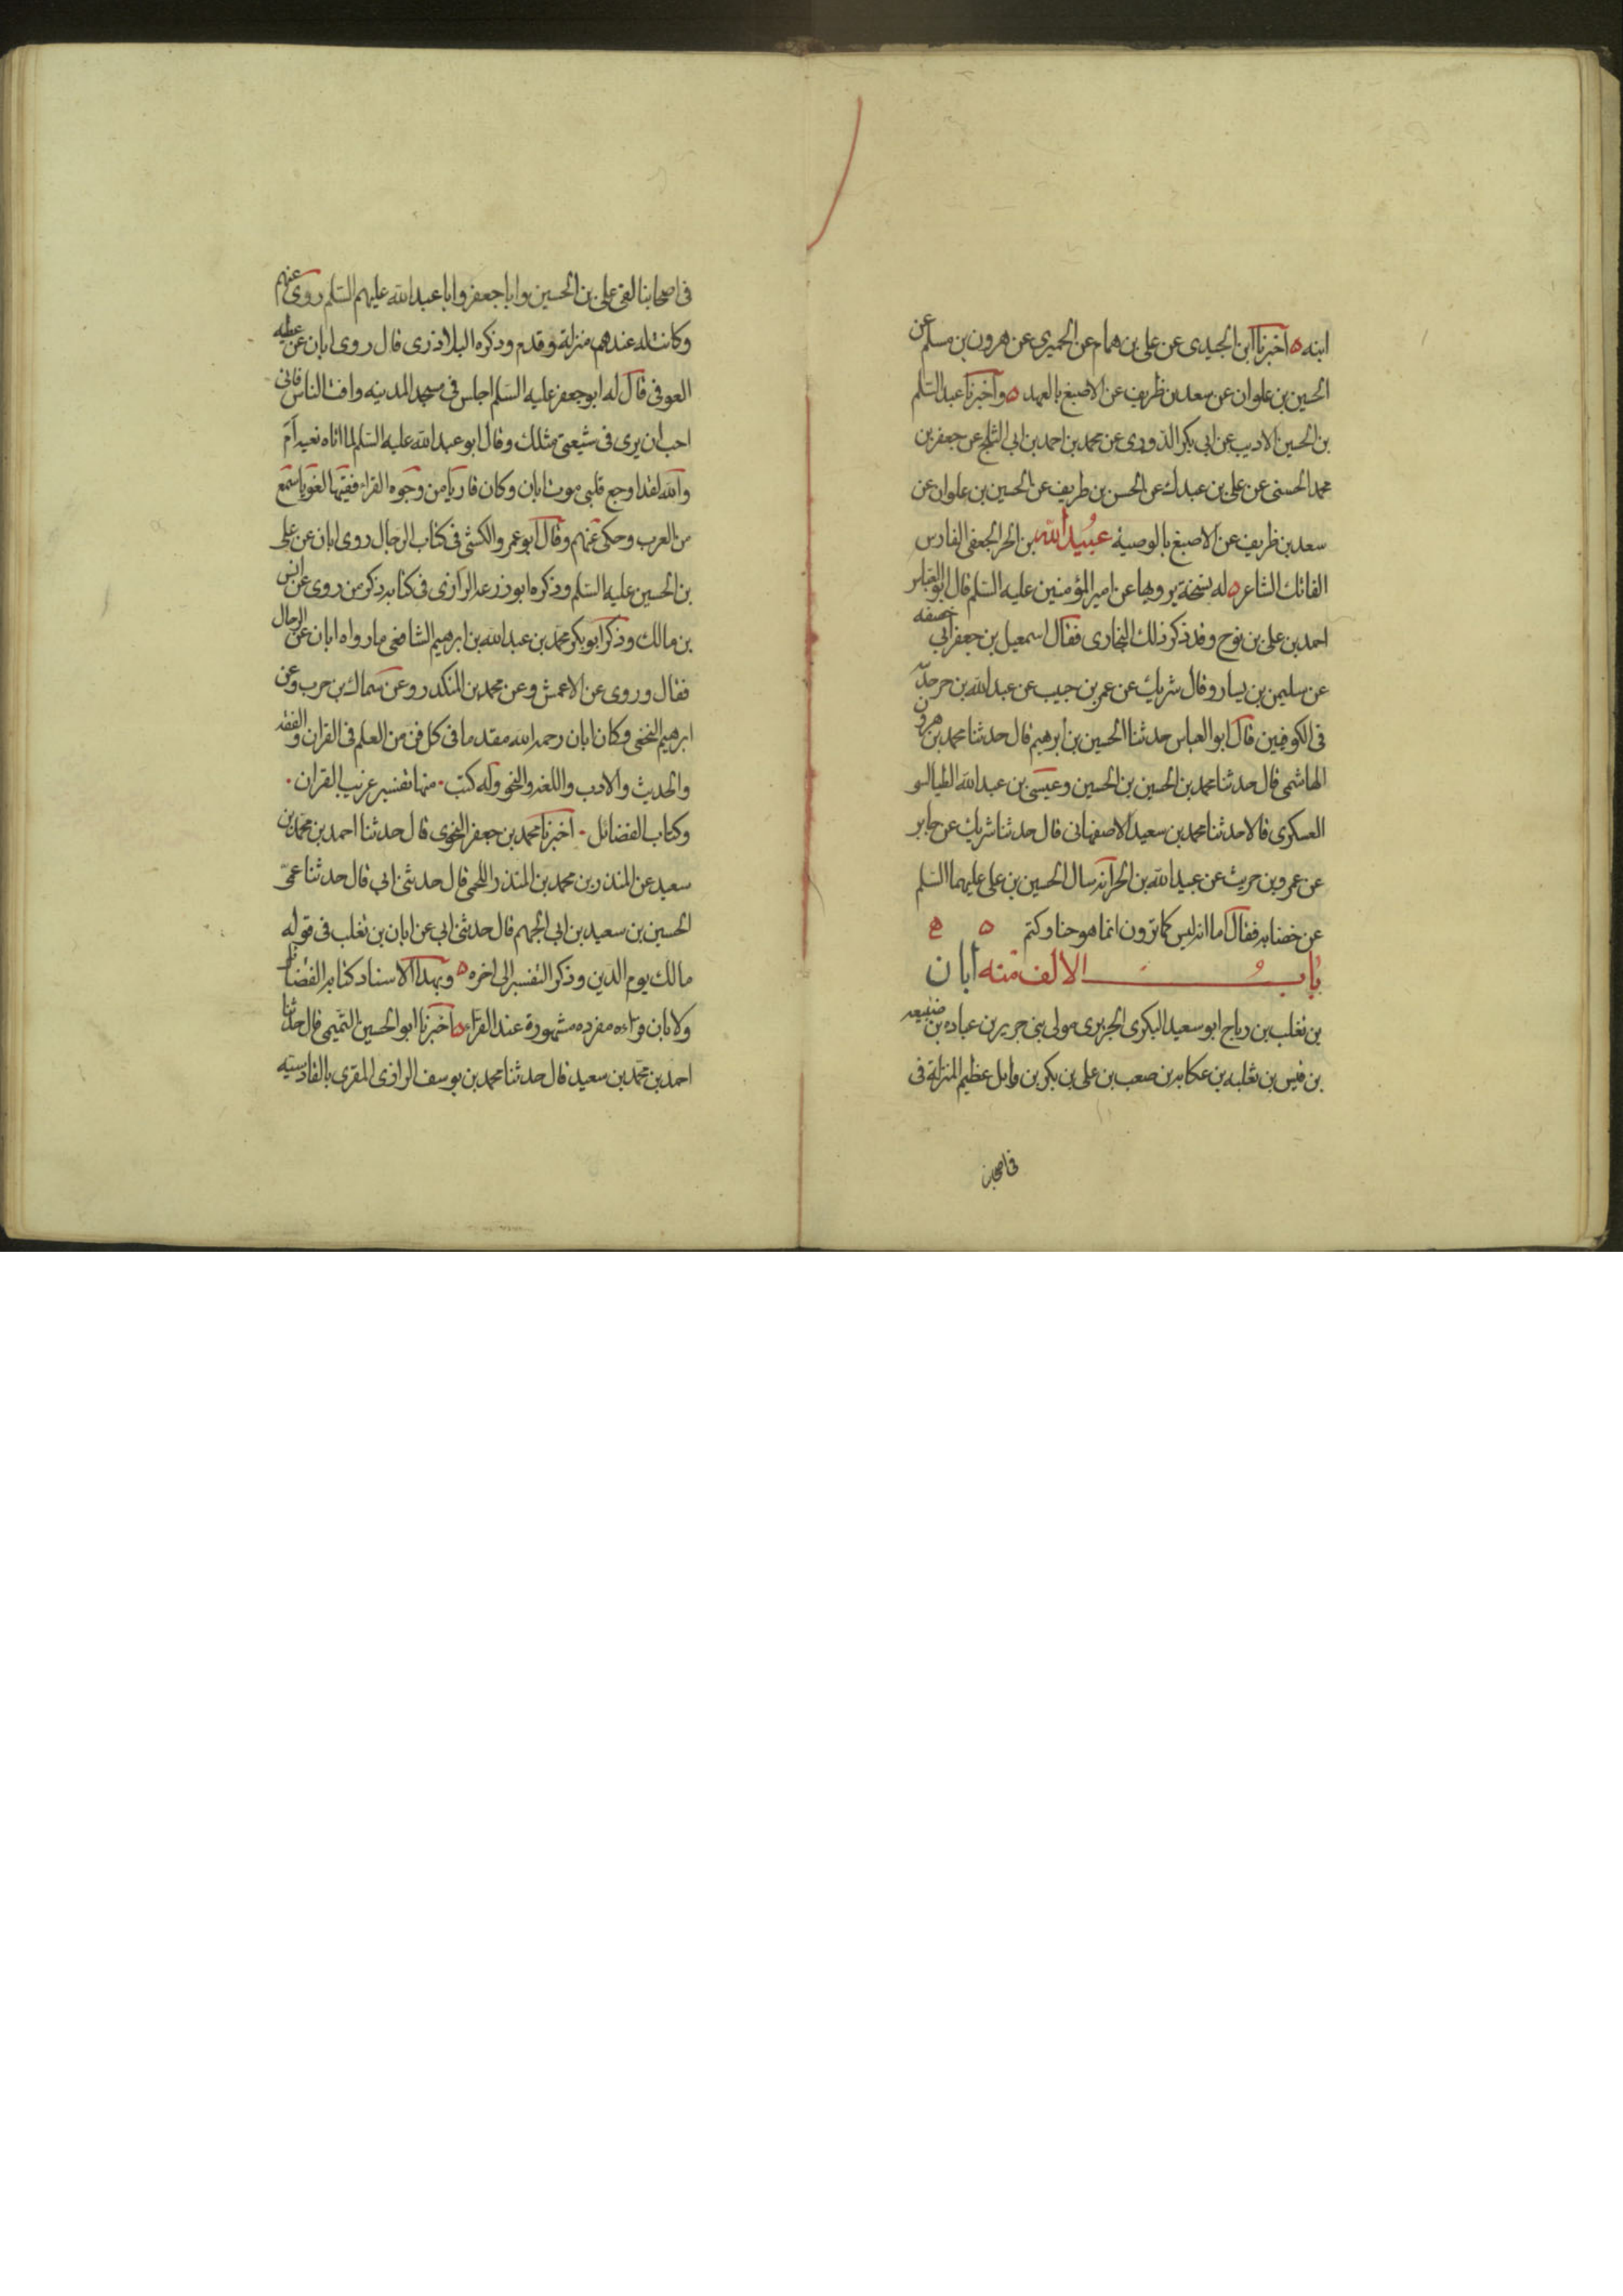 ابنه ه أخبرنا ابن الجيدى عن على بن همام عن الحميرى عن هرون بن مسلم عن
الحسين بن علوان عن سعد بن ظريف عن الاصبغ بالعهد ه وأخبرنا عبد السلم
بن الحسين الاديب عن ابى بكر الدورى عن محمد بن احمد بن ابى الثلج عن جعفر بن
محمد الحسنى عن على بن عبدك عن الحسن بن ظريف عن الحسين بن علوان عن
سعد بن ظريف عن الاصبغ بالوصية عبيد الله بن الحر الجعفى الفارس
الفاتك الشاعر ه له نسخة يرويها عن امير المؤمنين عليه السلم قال ابو العباس
احمد بن على بن نوح وقد ذكر ذلك البخارى فقال اسمعيل بن جعفر ابى خصفه
عن سليمن بن يسار وقال شريك عن عمر بن حبيب عن عبد الله بن حر حديثه
فى الكوفيين قال ابو العباس حدثنا الحسين بن ابرهيم قال حدثنا محمد بن هرون
الهاشمى قال حدثنا محمد بن الحسين بن الحسين وعيسى بن عبد الله الطيالسى
العسكرى قالا حدثنا محمد بن سعيد الاصفهانى قال حدثنا شريك عن جابر
عن عمرو بن حريث عن عبيد الله بن الحر انه سال الحسين بن على عليهما السلم
عن خضابه فقال اما انه ليس كما ترون انما هو حنا وكتم ه ه
باب الالف منه ابان
بن تغلب بن رباح ابو سعيد البكرى الجريرى مولى بنى جرير بن عباده بن ضبيعه
بن قيس بن ثعلبه بن عكابه بن صعب بن على بن بكر بن وايل عظيم المنزلة فى
فى اصحابنا
فى اصحابنا لقى على بن الحسين وابا جعفر وابا عبد الله عليهم السلم روى عنهم
وكانت له عندهم منزلة وقدم وذكره البلاذرى قال روى ابان عن عطيه
العوفى قال له ابو جعفر عليه السلم اجلس فى مسجد المدينه وافت الناس فانى
احب ان يرى فى شيعتى مثلك وقال ابو عبد الله عليه السلم لما اتاه نعيه ام
والله لقد اوجع قلبى موت ابان وكان قاريا من وجوه القراء فقيها لغويا سمع
من العرب وحكى عنهم وقال ابو عمرو الكشى فى كتاب الرجال روى ابان عن على
بن الحسين عليه السلم وذكره ابو زرعه الرازى فى كتابه ذكر من روى عن انس
بن مالك وذكر ابو بكر محمد بن عبد الله بن ابرهيم الشافعى ما رواه ابان عن الرجال
فقال وروى عن الاعمش وعن محمد بن المنكدر وعن سماك بن حرب وعن
ابرهيم النخعى وكان ابان رحمه الله مقدما فى كل فن من العلم فى القران والفقه
والحديث والادب واللغه والنحو وله كتب . منها تفسير غريب القران .
وكتاب الفضائل . أخبرنا محمد بن جعفر النحوى قال حدثنا احمد بن محمد بن
سعيد عن المنذر بن محمد بن المنذر اللخمى قال حدثنى ابى قال حدثنا عمى
الحسين بن سعيد بن ابى الجهم قال حدثنى ابى عن ابان بن تغلب فى قوله
مالك يوم الدين وذكر التفسير الى اخره ه وبهذا الاسناد كتابه الفضائل
ولابان قراءه مفرده مشهورة عند القراء ه أخبرنا ابو الحسين التميمى قال حدثنا
احمد بن محمد بن سعيد قال حدثنا محمد بن يوسف الرازى المقرى بالقادسيه